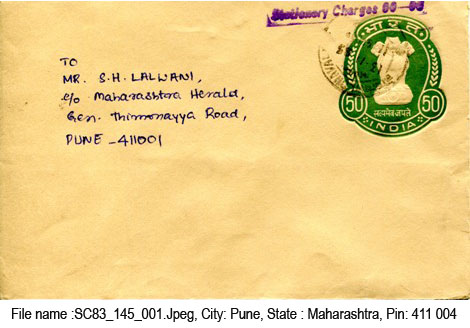 Stationery Charges 00-03
भारत
50 50
सत्यमेव जयते
INDIA
TO
MR. S.H. LALWANI,
c/o Maharashtra Herald,
Gen. Thimmayya Road,
PUNE - 411001
File name :SC83_145_001.Jpeg, City: Pune, State : Maharashtra, Pin: 411 004